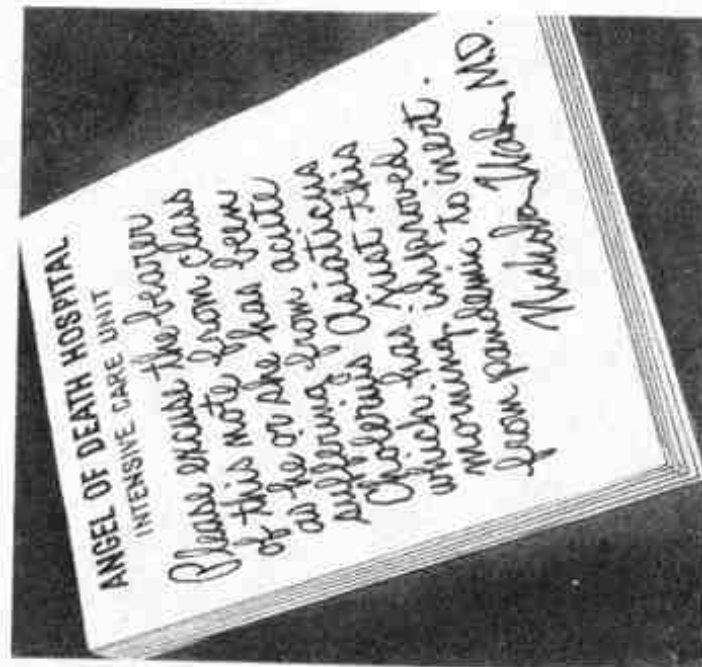 ANGEL OF DEATH HOSPITAL
INTENSIVE CARE UNIT
Please excuse the bearer
of this note from class
as he or she has been
suffering from acute
Cholerius Asiaticus
which has just this
morning improved
from pandemic to inert.
Nicholas M.D.